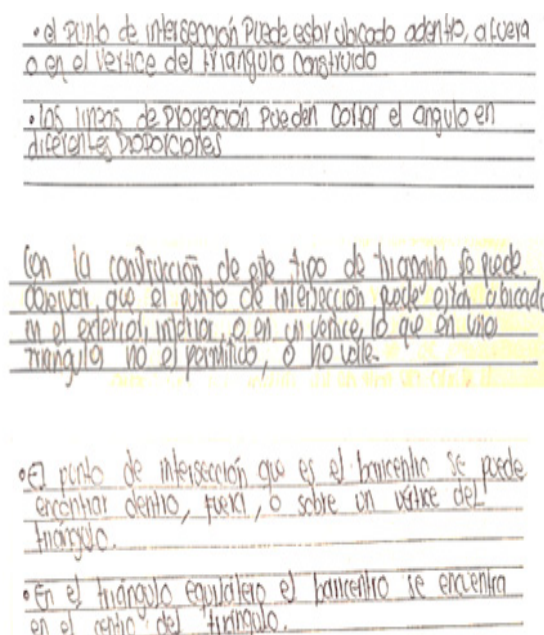 • el punto de intersección Puede estar ubicado adentro, afuera
o en el vertice del triángulo construido
• las lineas de proyección pueden cortar el angulo en
diferentes proporciones
Con la construcción de este tipo de triangulo se puede
observar, que el punto de intersección puede estar ubicado
en el exterior, interior, o en un vertice, lo que en unos
triangulos no es permitido, o no valle.
• El punto de intersección que es el baricentro se puede
encontrar dentro, fuera, o sobre un vértice del
triángulo.
• En el triángulo equilatero el baricentro se encuentra
en el centro del triángulo.